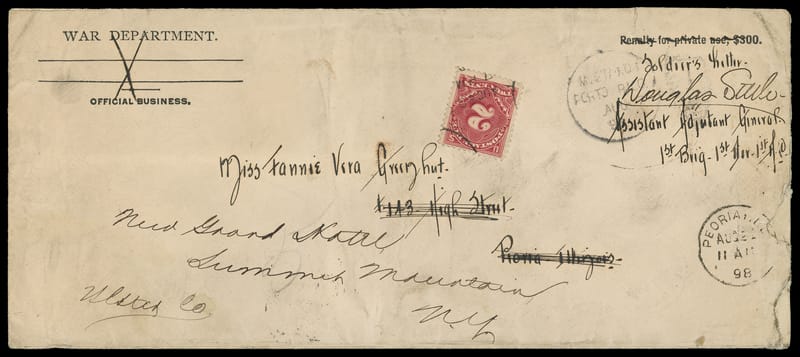 WAR DEPARTMENT.
OFFICIAL BUSINESS.
Penalty for private use, $300.
Soldier's Letter.
Douglas Settle
Assistant Adjutant General
1st Brig - 1st Div - 1st
PORTO
2
Miss Fannie Vera Greenhut.
High Street.
Peoria Illinois.
New Grand Hotel
Summer Mountain
Ulster Co
N.Y.
PEORIA
AUG
11 A
98